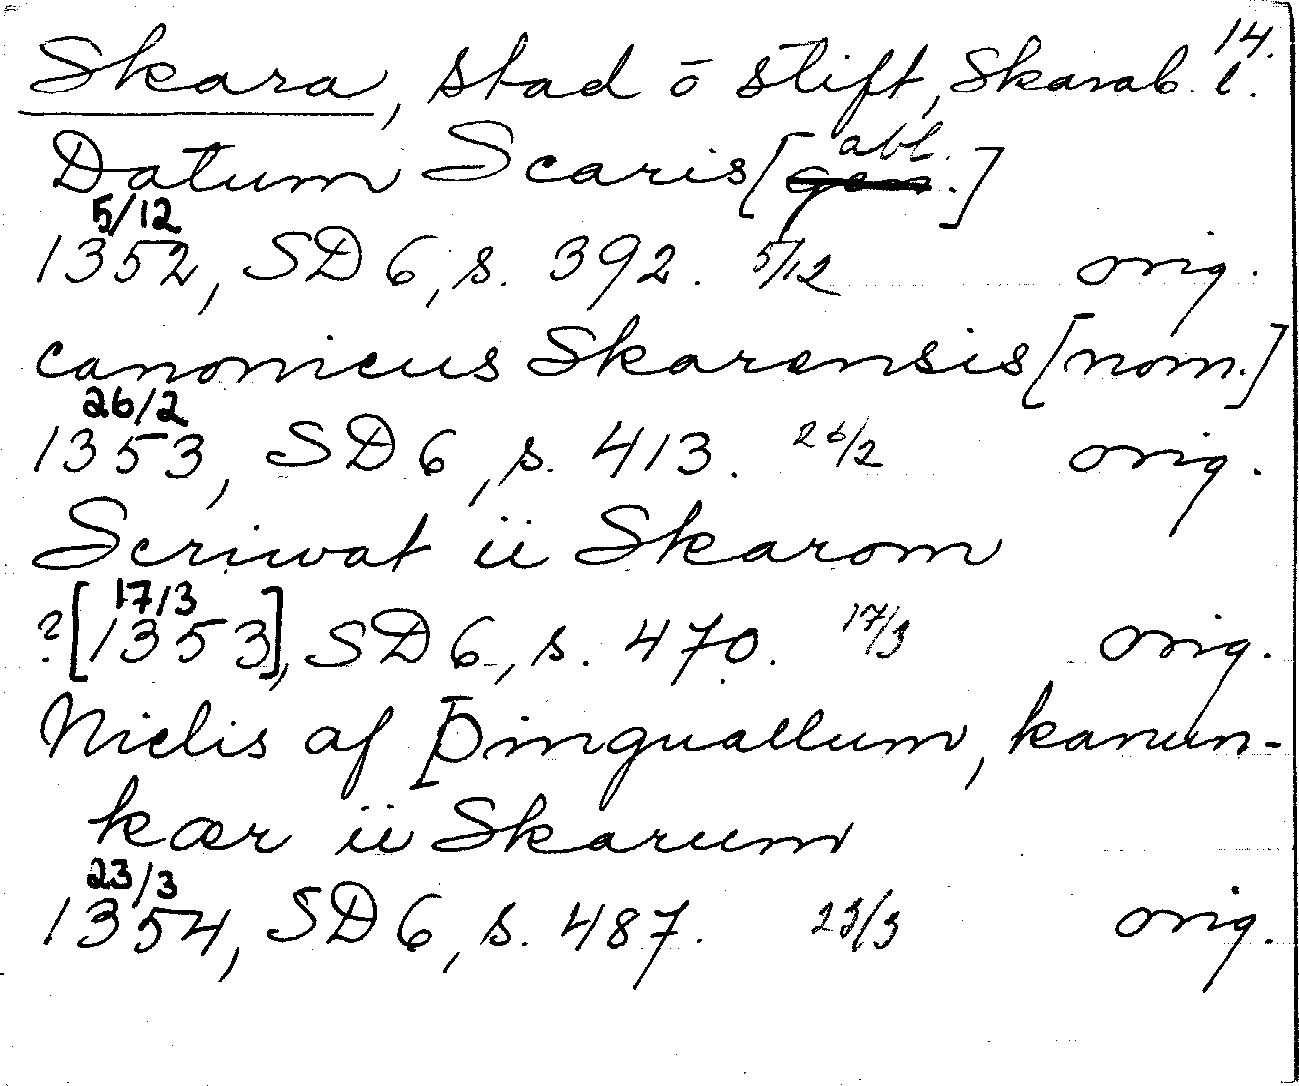 14.
Skara, stad ō stift, Skarab. l.
abl.
Datum Scaris [gen.]
5/12
1352, SD 6, s. 392. 5/12 orig.
canonicus Skarensis [nom.]
26/2
1353, SD 6, s. 413. 26/2 orig.
Scriwat ii Skarom
17/3
?[1353], SD 6, s. 470. 17/3 orig.
Niclis af þinguallum, kanun-
kær ii Skarum
23/3
1354, SD 6, s. 487. 23/3 orig.